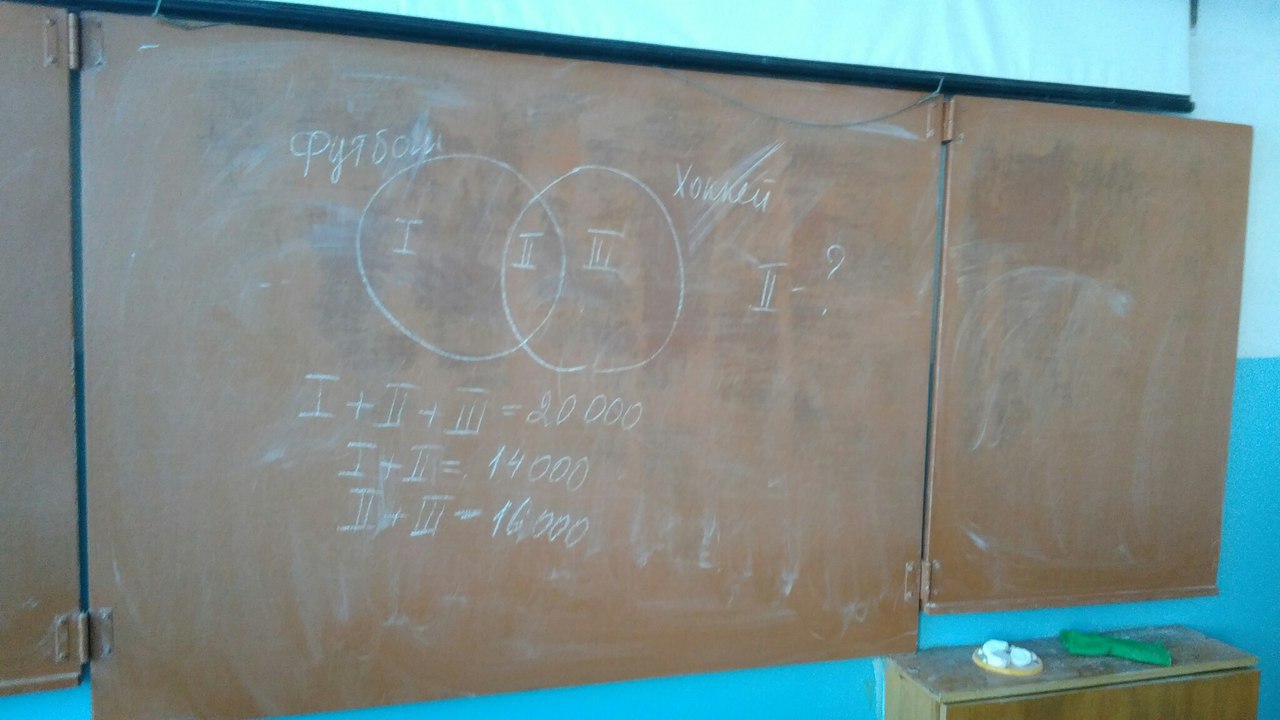 Футбол
Хоккей
I II III
II - ?
I + II + III = 20 000
I + II = 14000
II + III = 16000